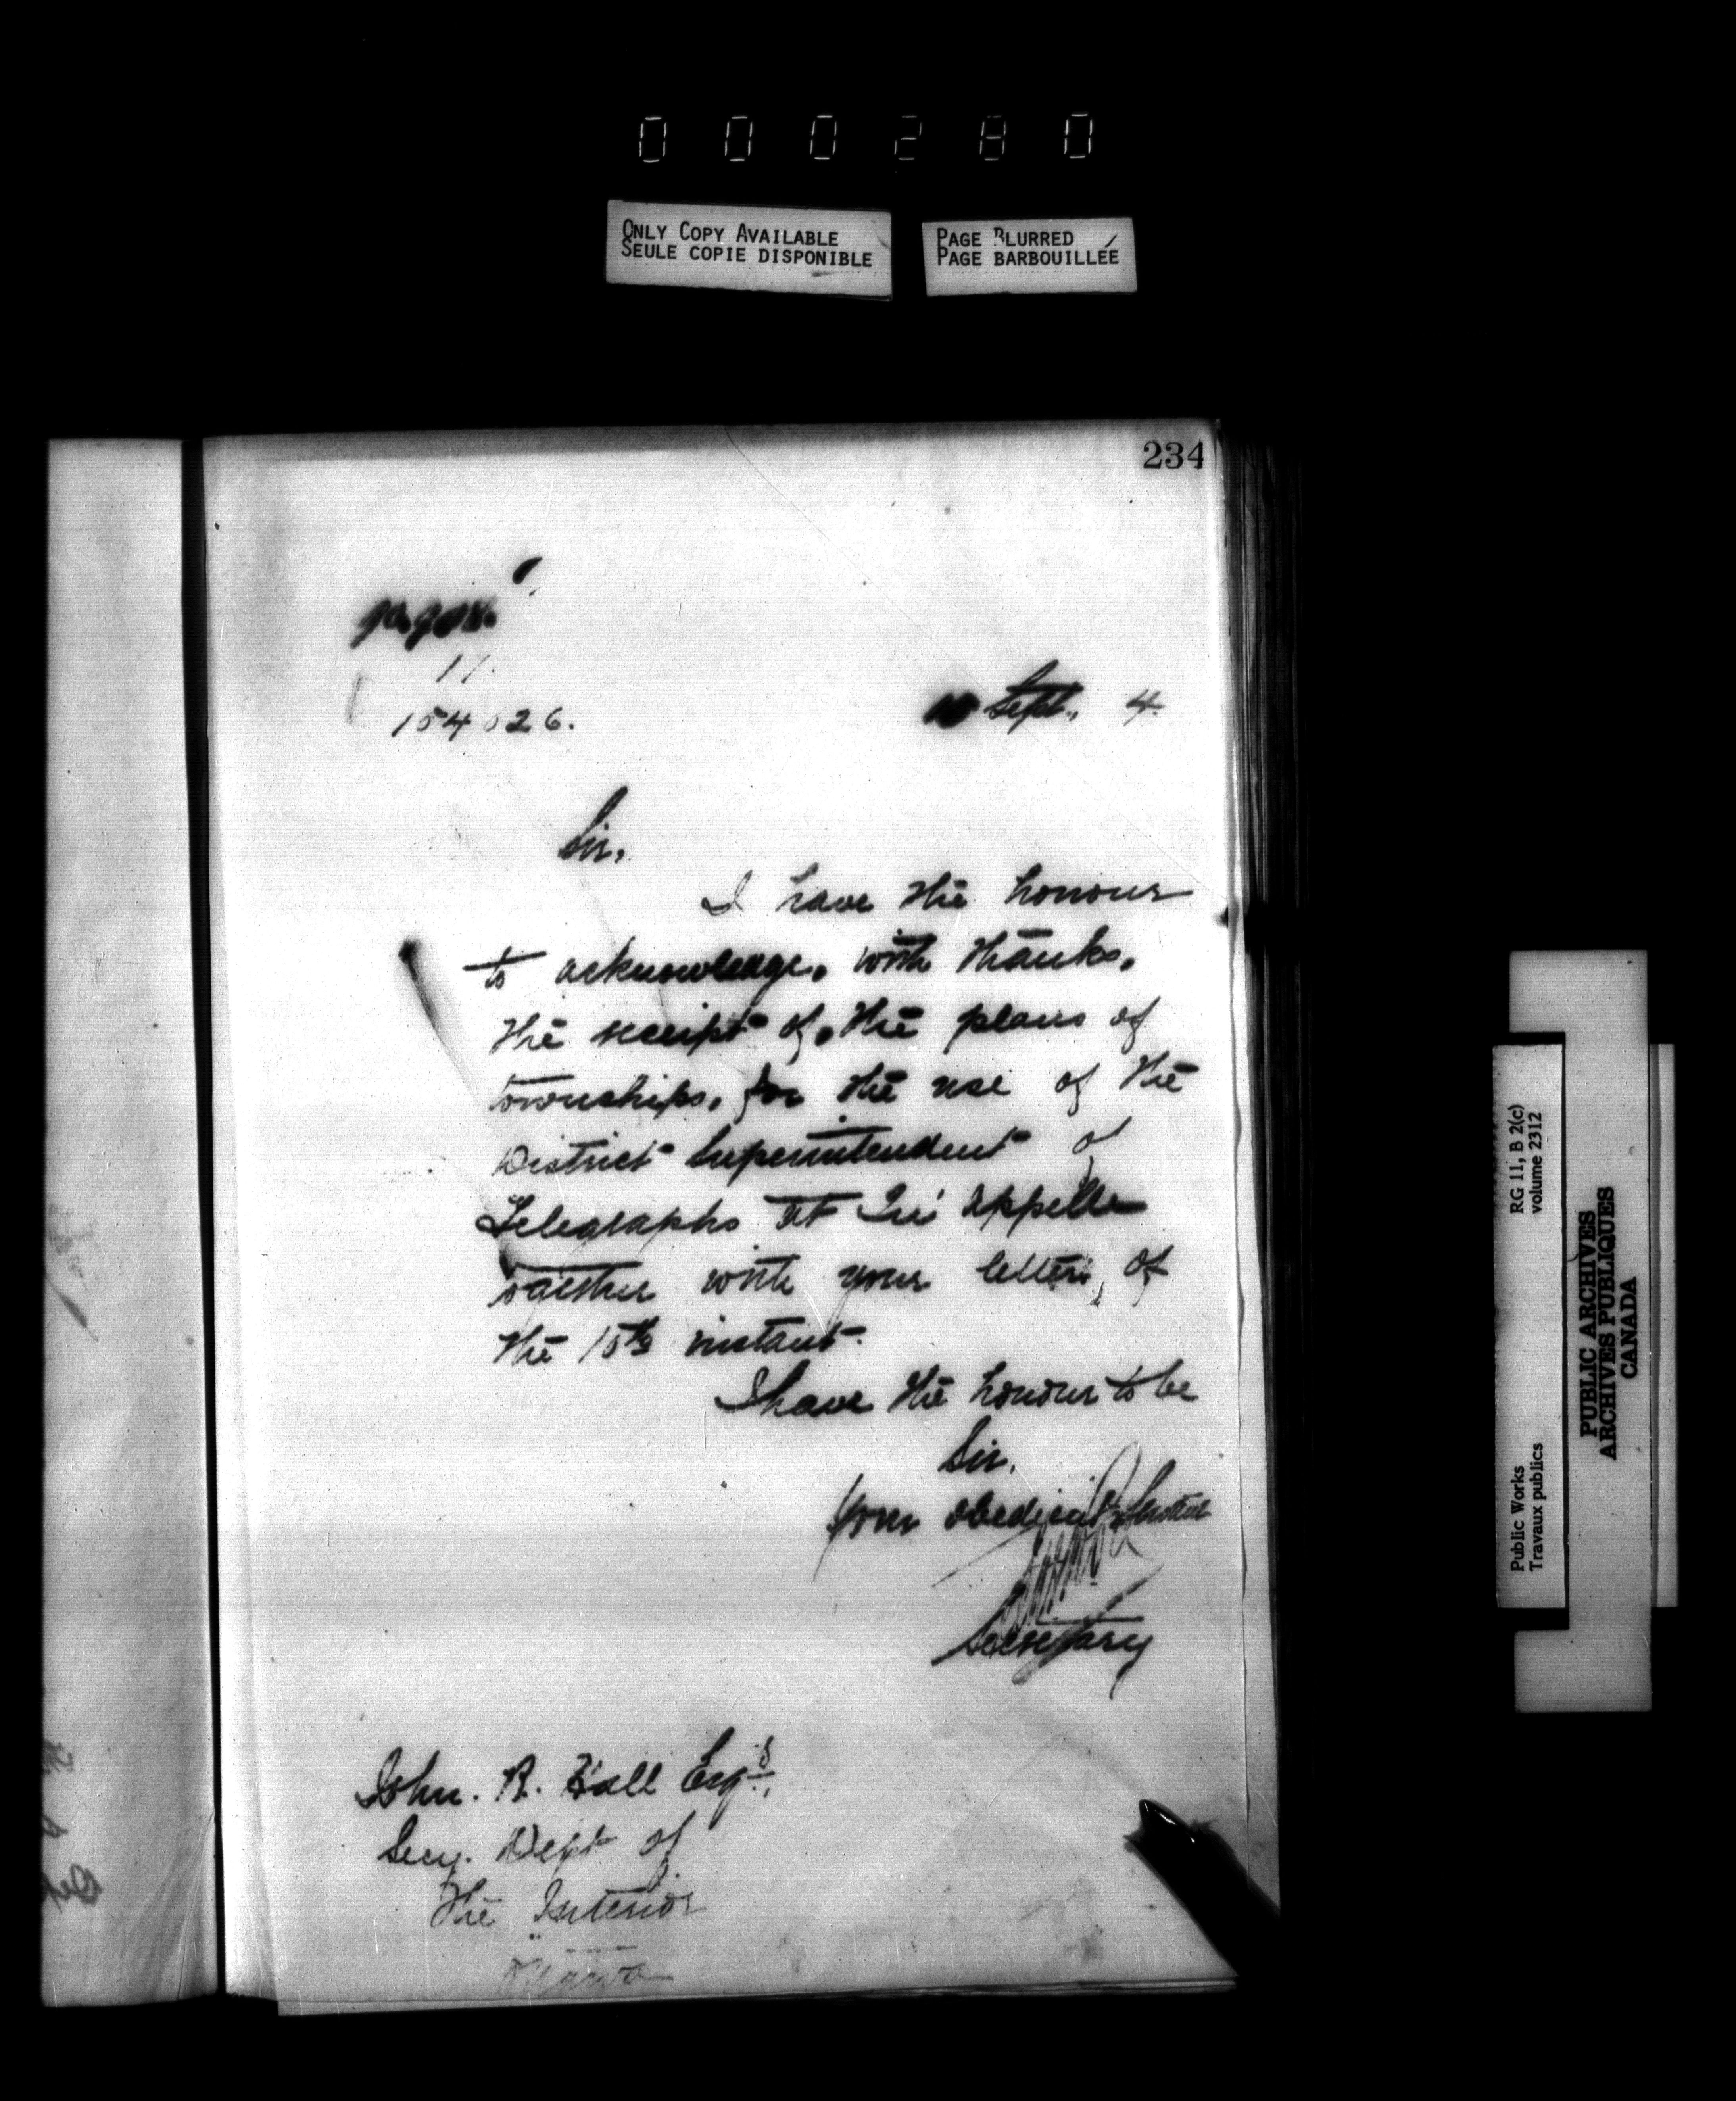 000280
ONLY COPY AVAILABLE
SEULE COPIE DISPONIBLE
PAGE BLURRED
PAGE BARBOUILLÉE
234
17.
154026.
Sept. 4.
Sir,
I have the honour
to acknowledge, with thanks,
the receipt of, the plans of
townships, for the use of the
District Superintendent of
Telegraphs at Qu'appelle
together with your letter, of
the 15th instant.
I have the honour to be
Sir,
Your obedient Servant
Secretary
John. R. Hall Esqr.,
Secy. Dept of
the Interior
Ottawa
Public Works
Travaux publics
RG 11, B 2(c)
volume 2312
PUBLIC ARCHIVES
ARCHIVES PUBLIQUES
CANADA